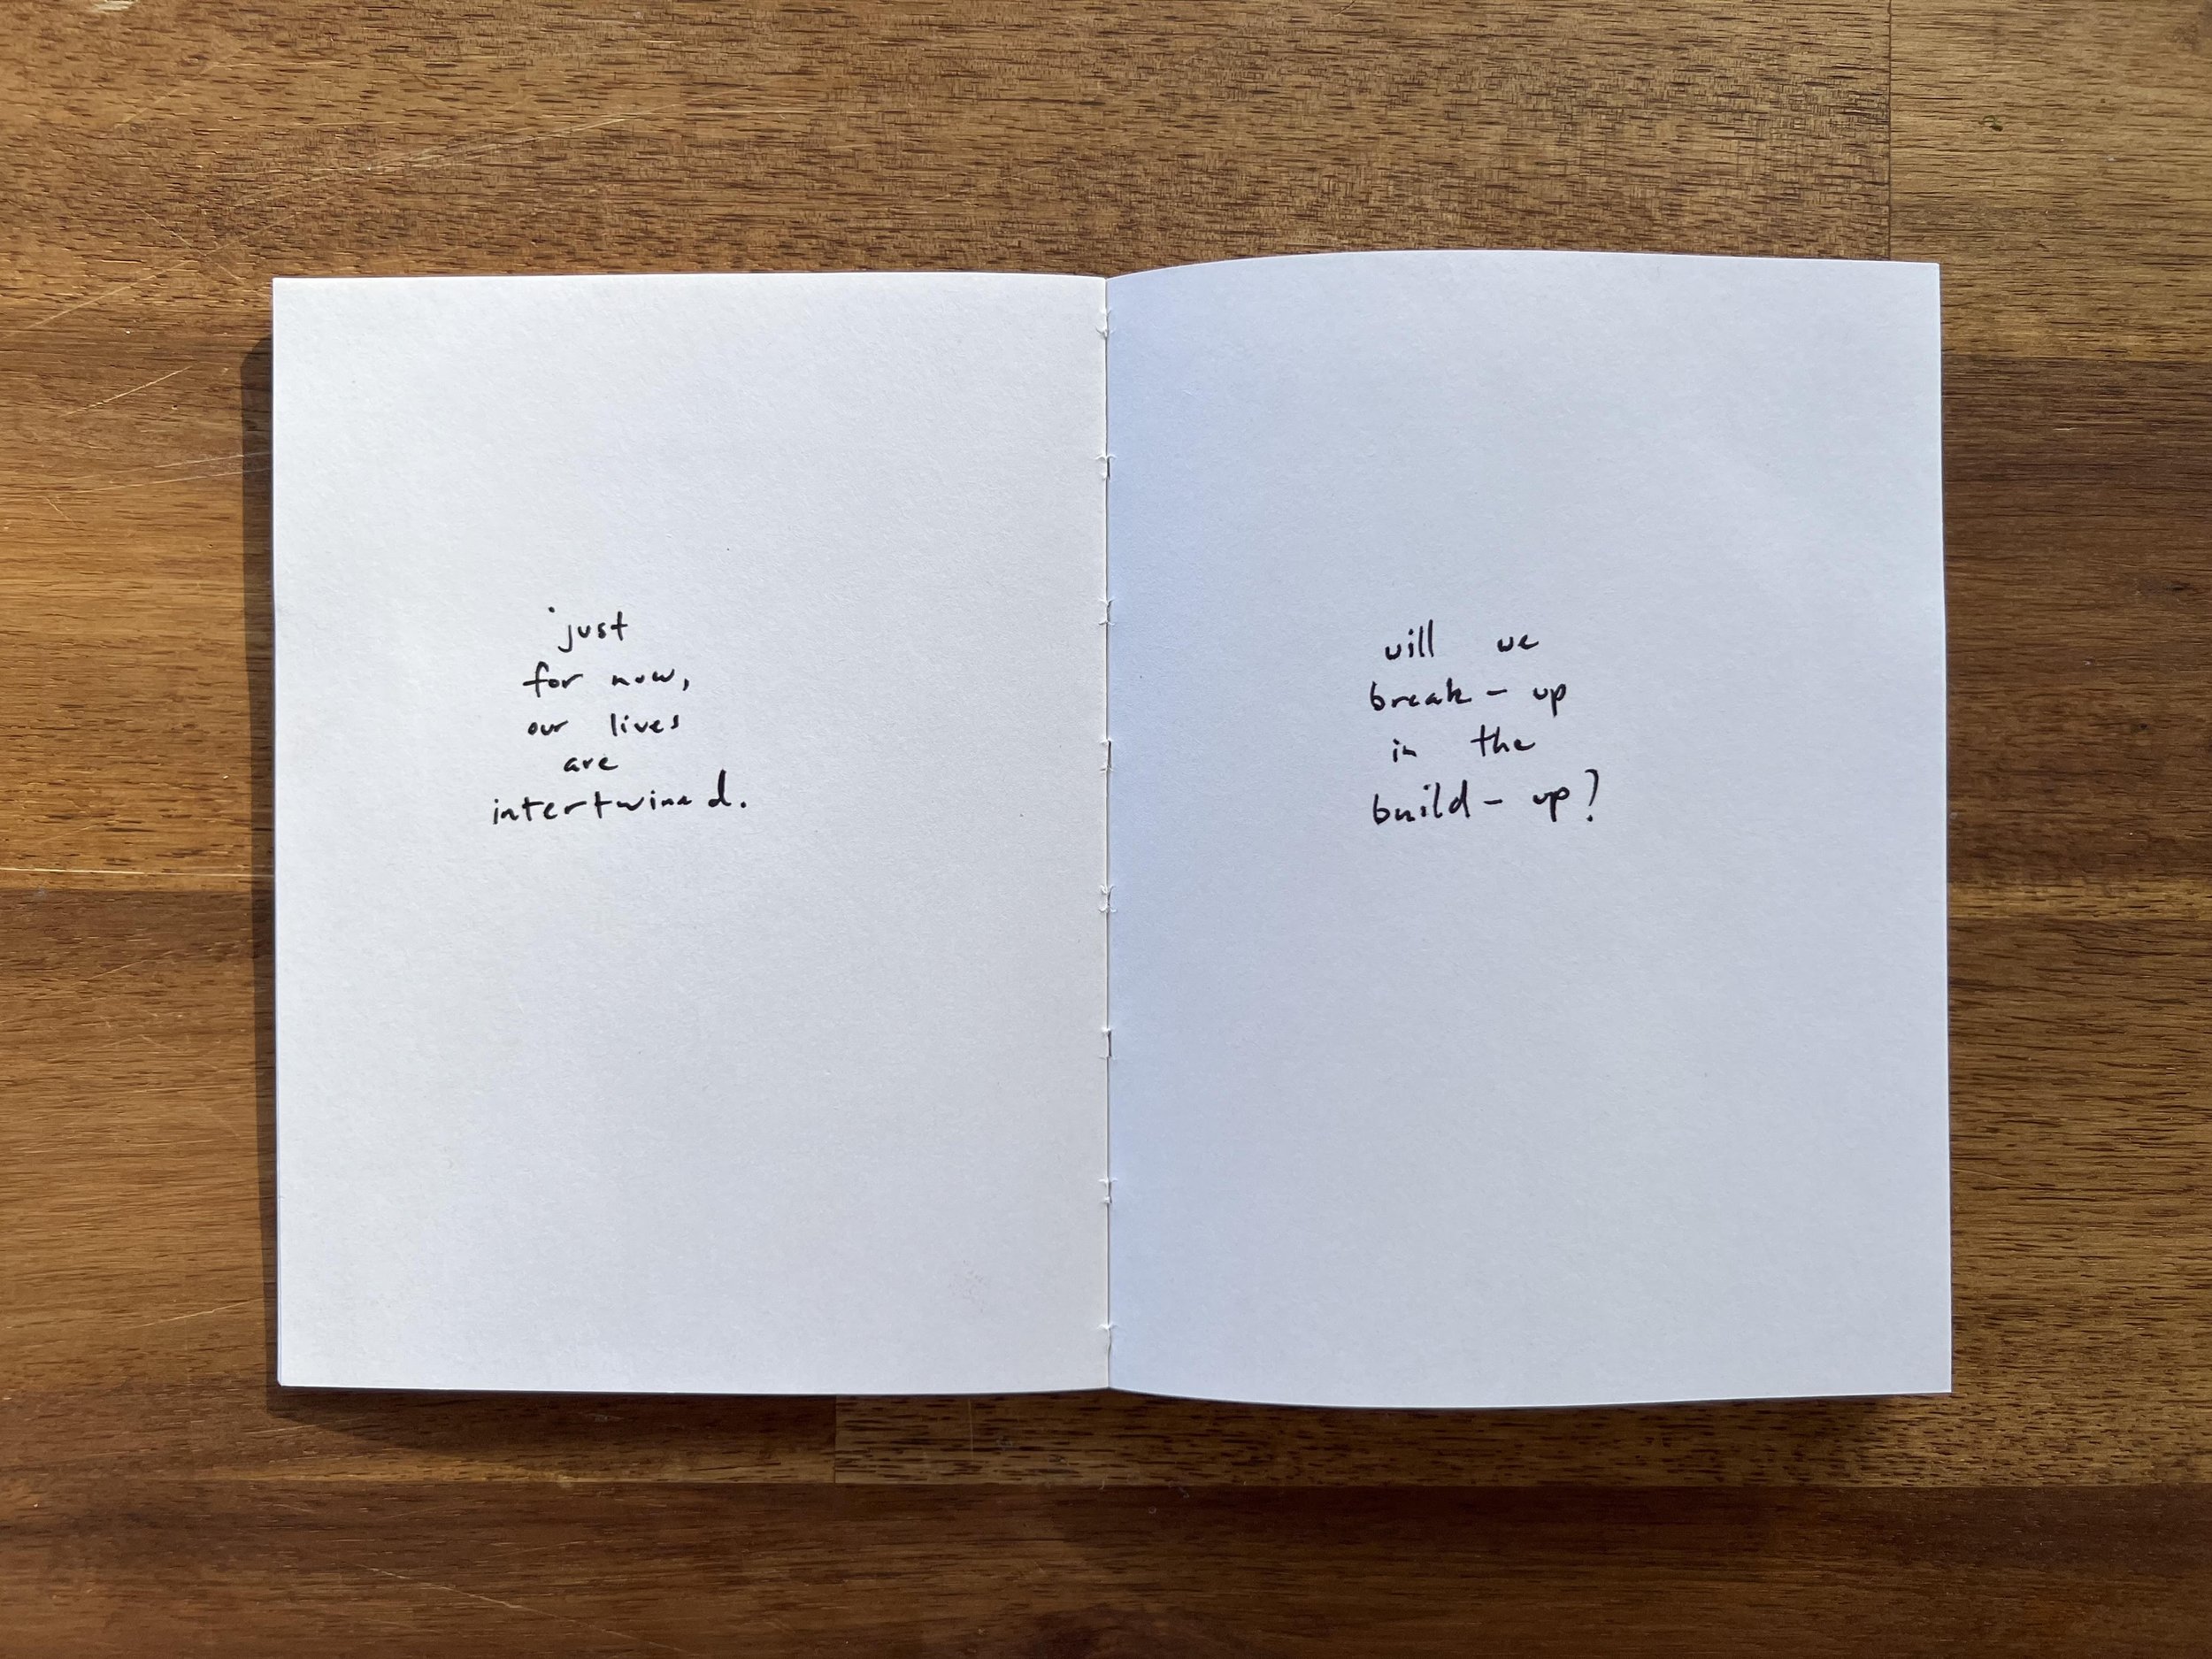 just
for now,
our lives
are
intertwined.
will we
break-up
in the
build-up?